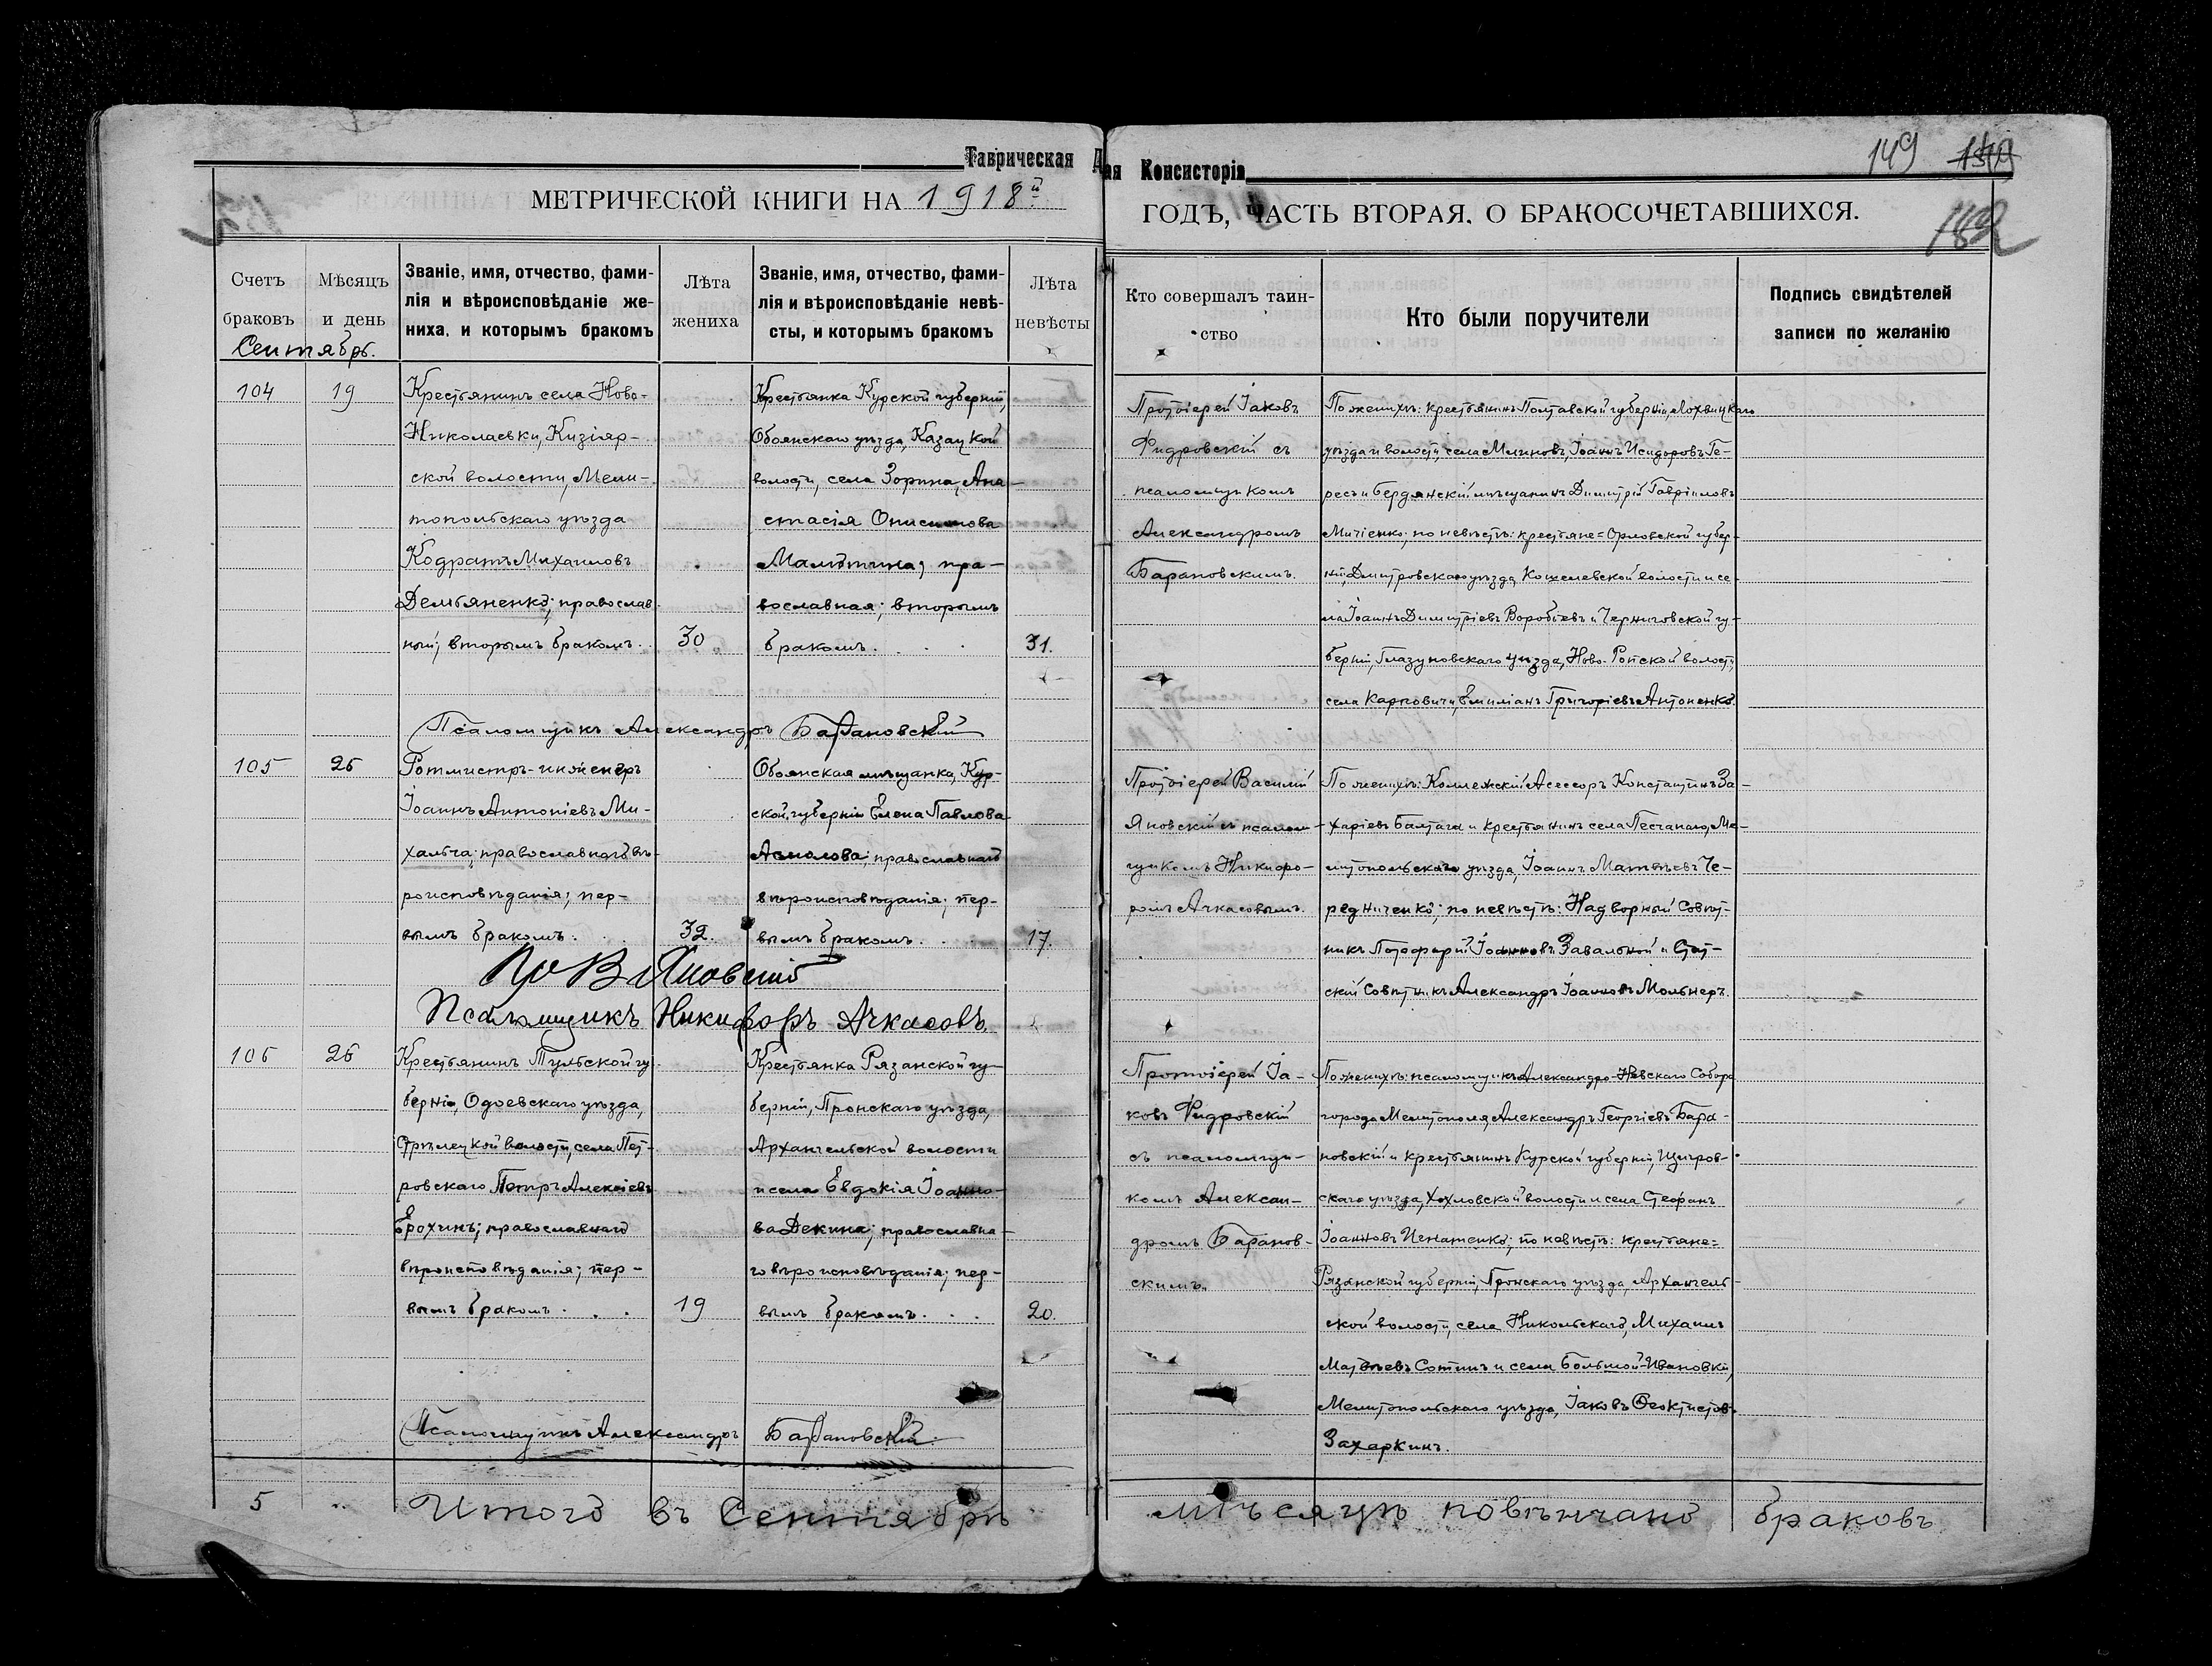 Таврическая Д
ая Консисторія
149
МЕТРИЧЕСКОЙ КНИГИ НА 1918й
ГОДЪ, ЧАСТЬ ВТОРАЯ, О БРАКОСОЧЕТАВШИХСЯ.
182
Счетъ браковъ
Мѣсяцъ и день
Званіе, имя, отчество, фами-
лія и вѣроисповѣданіе же-
ниха, и которымъ бракомъ
Лѣта жениха
Званіе, имя, отчество, фами-
лія и вѣроисповѣданіе невѣ-
сты, и которымъ бракомъ
Лѣта невѣсты
Кто совершалъ таин-
ство
Кто были поручители
Подпись свидѣтелей
записи по желанію
Сентябрь.
104
19
Крестьянинъ села Ново-
Николаевки, Кизіяр-
ской волости, Мели-
топольскаго уѣзда
Кодратъ Михаиловъ
Демьяненко; православ-
ный; вторымъ бракомъ.
30
Крестьянка Курской губерніи,
Обоянскаго уѣзда, Казацкой
волости, села Зорина, Ана-
стасія Онисимова
Малютина; пра-
вославная; вторымъ
бракомъ.
31.
Протоіерей Іаковъ
Фидровскій съ
псаломщикомъ
Александромъ
Барановскимъ.
По женихѣ: крестьянинъ Полтавской губерніи, Лохвицкаго
уѣзда и волости, села Млиновъ, Іоаннъ Исидоровъ Ге-
ресъ и Бердянскій мѣщанинъ Димитрій Гавріиловъ
по невѣстѣ: крестьяне = Орловской губер-
ніи, Дмитровскаго уѣзда, Кошелевской волости и се-
ла Іоаннъ Димитріевъ Воробіевъ и Черниговской гу-
берніи, Глазуновскаго уѣзда, Ново-Ропской волости,
села Карповичи, Емиліанъ Григоріевъ Антоненко.
Псаломщикъ Александръ Барановскій
105
26
Ротмистръ-инженеръ
Іоаннъ Антоніевъ Ми-
хальча; православнаго вѣ-
роисповѣданія; пер-
вымъ бракомъ.
32.
Обоянская мѣщанка, Кур-
ской губерніи Елена Павлова
Асмолова; православнаго
вѣроисповѣданія; пер-
вымъ бракомъ.
17.
Протоіерей Василій
Яновскій съ псалом-
щикомъ Никифо-
ромъ Ачкасовымъ.
По женихѣ: Коллежскій Асессоръ Константинъ За-
харіевъ Балтага и крестьянинъ села Песчанаго, Ме-
литопольскаго уѣзда, Іоаннъ Матвѣевъ Че-
редниченко; по невѣстѣ: Надворный Совѣт-
никъ Порфирій Іоанновъ Завальной и Стат-
скій Совѣтникъ Александръ Іоанновъ Мольнеръ.
Яновскій
Псаломщикъ Никифоръ Ачкасовъ.
106
26
Крестьянинъ Тульской гу-
берніи, Одоевскаго уѣзда,
Стрѣлецкой волости, села Пет-
ровскаго Петръ Алексіевъ
Ерохинъ; православнаго
вѣроисповѣданія; пер-
вымъ бракомъ.
19
Крестьянка Рязанской гу-
берніи, Пронскаго уѣзда,
Архангельской волости
и села Евдокія Іоанно-
ва Декина; православна-
го вѣроисповѣданія; пер-
вымъ бракомъ.
20.
Протоіерей Іа-
ковъ Фидровскій
съ псаломщи-
комъ Алексан-
дромъ Баранов-
скимъ.
По женихѣ: псаломщикъ Александро-Невскаго Собора
города Мелитополя, Александръ Георгіевъ Бара-
новскій и крестьянинъ Курской губерніи, Щигров-
скаго уѣзда, Хохловской волости и села Стефанъ
Іоанновъ Игнатенко; по невѣстѣ: крестьяне =
Рязанской губерніи, Пронскаго уѣзда, Архангель-
ской волости, села Никольскаго, Михаилъ
Матвѣевъ Сотинъ и села Большой-Ивановки,
Мелитопольскаго уѣзда, Іаковъ Ѳеоктистовъ
Захаркинъ.
Псаломщикъ Александръ Барановскій.
5 Итого въ Сентябрѣ мѣсяцѣ повѣнчано браковъ